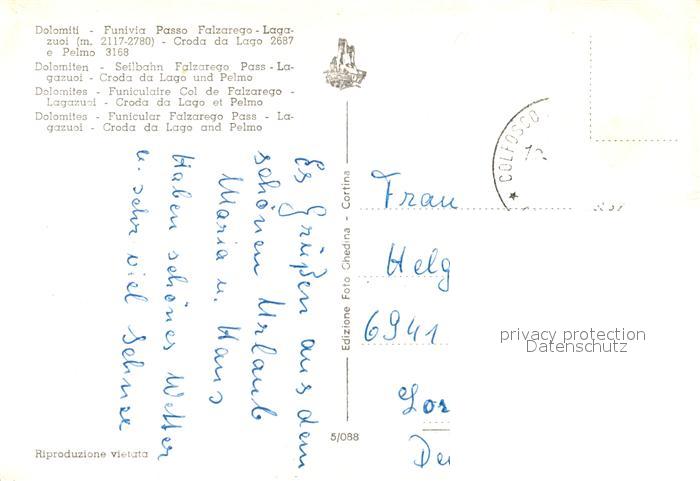 Dolomiti - Funivia Passo Falzarego - Laga-
zuoi (m. 2117-2780) - Croda da Lago 2687
e Pelmo 3168
Dolomiten - Seilbahn Falzarego Pass - La-
gazuoi - Croda da Lago und Pelmo
Dolomites - Funiculaire Col de Falzarego -
Lagazuoi - Croda da Lago et Pelmo
Dolomites - Funicular Falzarego Pass - La-
gazuoi - Croda da Lago and Pelmo
Es Grüßen aus dem
schönen Urlaub
Maria u. Hans
Haben schönes Wetter
u. sehr viel Schnee
Riproduzione vietata
Edizione Foto Ghedina - Cortina
5/088
COLFOSCO
Frau
Helg
6941
Lor
De
privacy protection
Datenschutz